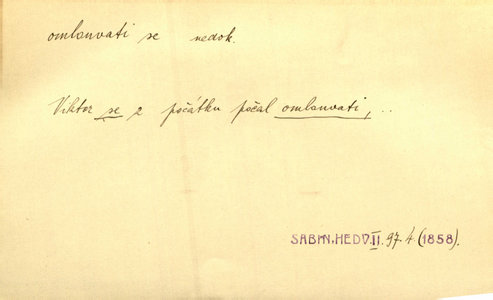 omlouvati se nedok.
Viktor se z počátku počal omlouvati, ..
SABIN, HEDV. II. 97. 4 (1858).